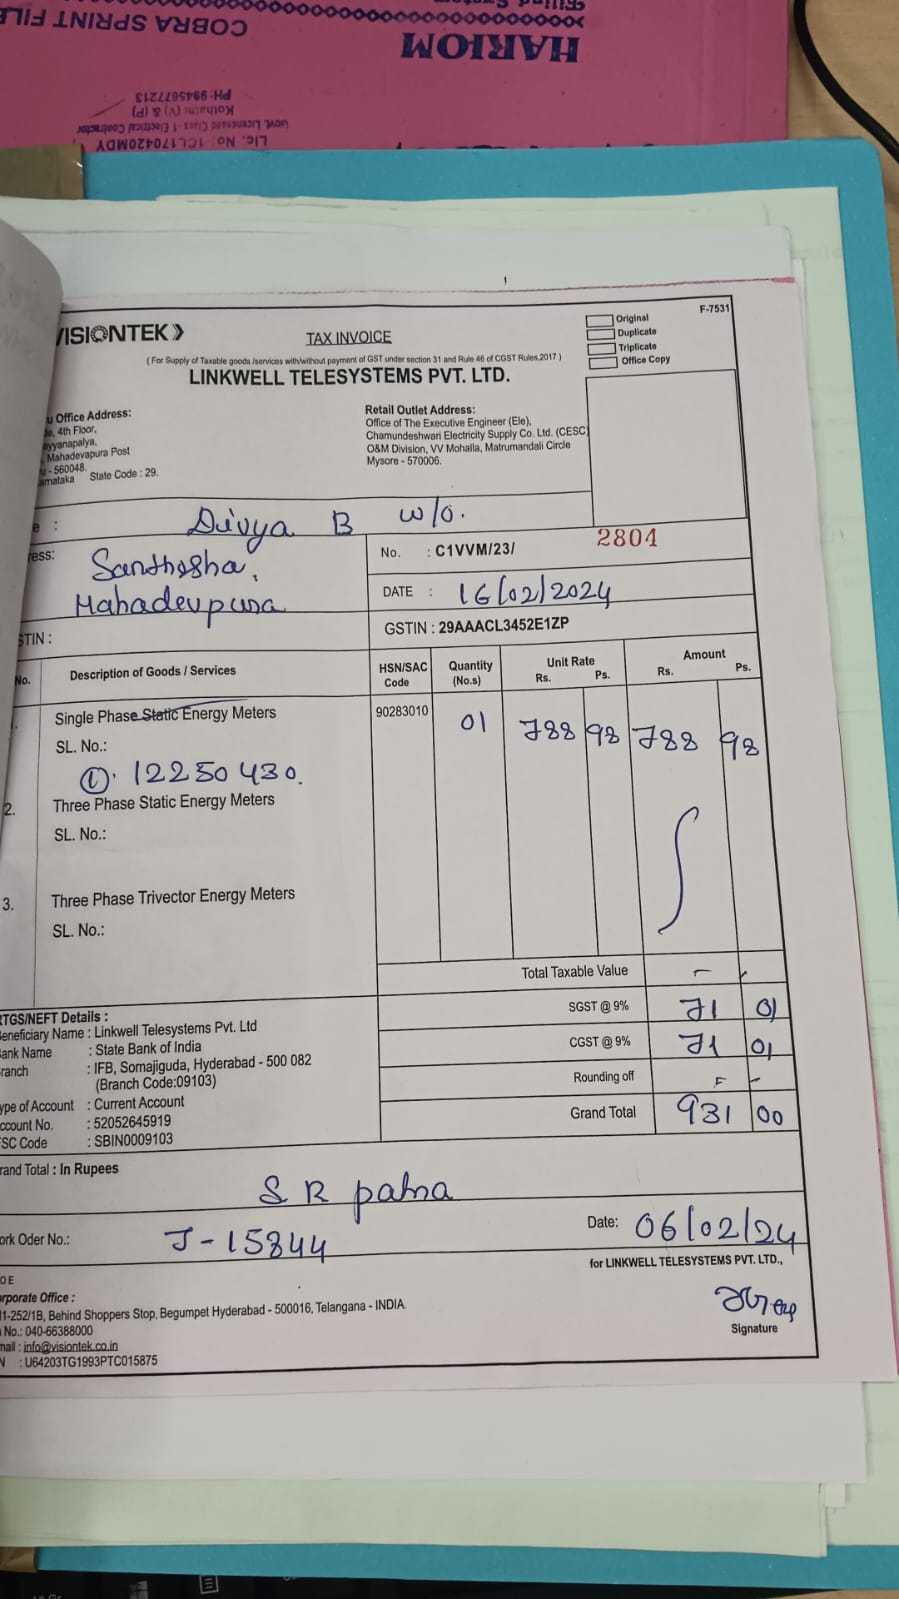 COBRA SPRINT FILE
HARIOM
PH: 9945677213
Kothathi (V) & (P)
Govt. Licensced Class-1 Electrical Contractor
Lic. No: 1CL170420MDY
F-7531
VISIONTEK
TAX INVOICE
Original
Duplicate
Triplicate
Office Copy
( For Supply of Taxable goods /services with/without payment of GST under section 31 and Rule 46 of CGST Rules,2017 )
LINKWELL TELESYSTEMS PVT. LTD.
u Office Address:
4th Floor,
ayyanapalya,
Mahadevapura Post
u - 560048.
arnataka State Code : 29.
Retail Outlet Address:
Office of The Executive Engineer (Ele),
Chamundeshwari Electricity Supply Co. Ltd. (CESC
O&M Division, VV Mohalla, Matrumandali Circle
Mysore - 570006.
e : Divya B w/o.
ress: Santhosha,
Mahadevpura
No. : C1VVM/23/ 2804
DATE : 16/02/2024
STIN :
GSTIN : 29AAACL3452E1ZP
No. Description of Goods / Services HSN/SAC Code Quantity (No.s) Unit Rate Rs. Ps. Amount Rs. Ps.
Single Phase Static Energy Meters 90283010 01 788 98 788 98
SL. No.:
① 12250430.
2. Three Phase Static Energy Meters
SL. No.:
3. Three Phase Trivector Energy Meters
SL. No.:
Total Taxable Value - -
SGST @ 9% 71 01
CGST @ 9% 71 01
Rounding off - -
Grand Total 931 00
RTGS/NEFT Details :
Beneficiary Name : Linkwell Telesystems Pvt. Ltd
Bank Name : State Bank of India
ranch : IFB, Somajiguda, Hyderabad - 500 082
(Branch Code:09103)
ype of Account : Current Account
ccount No. : 52052645919
SC Code : SBIN0009103
rand Total : In Rupees
S R patna
ork Oder No.: J-15844
Date: 06/02/24
for LINKWELL TELESYSTEMS PVT. LTD.,
OE
rporate Office :
11-252/1B, Behind Shoppers Stop, Begumpet Hyderabad - 500016, Telangana - INDIA.
No.: 040-66388000
mail : info@visiontek.co.in
N : U64203TG1993PTC015875
Signature